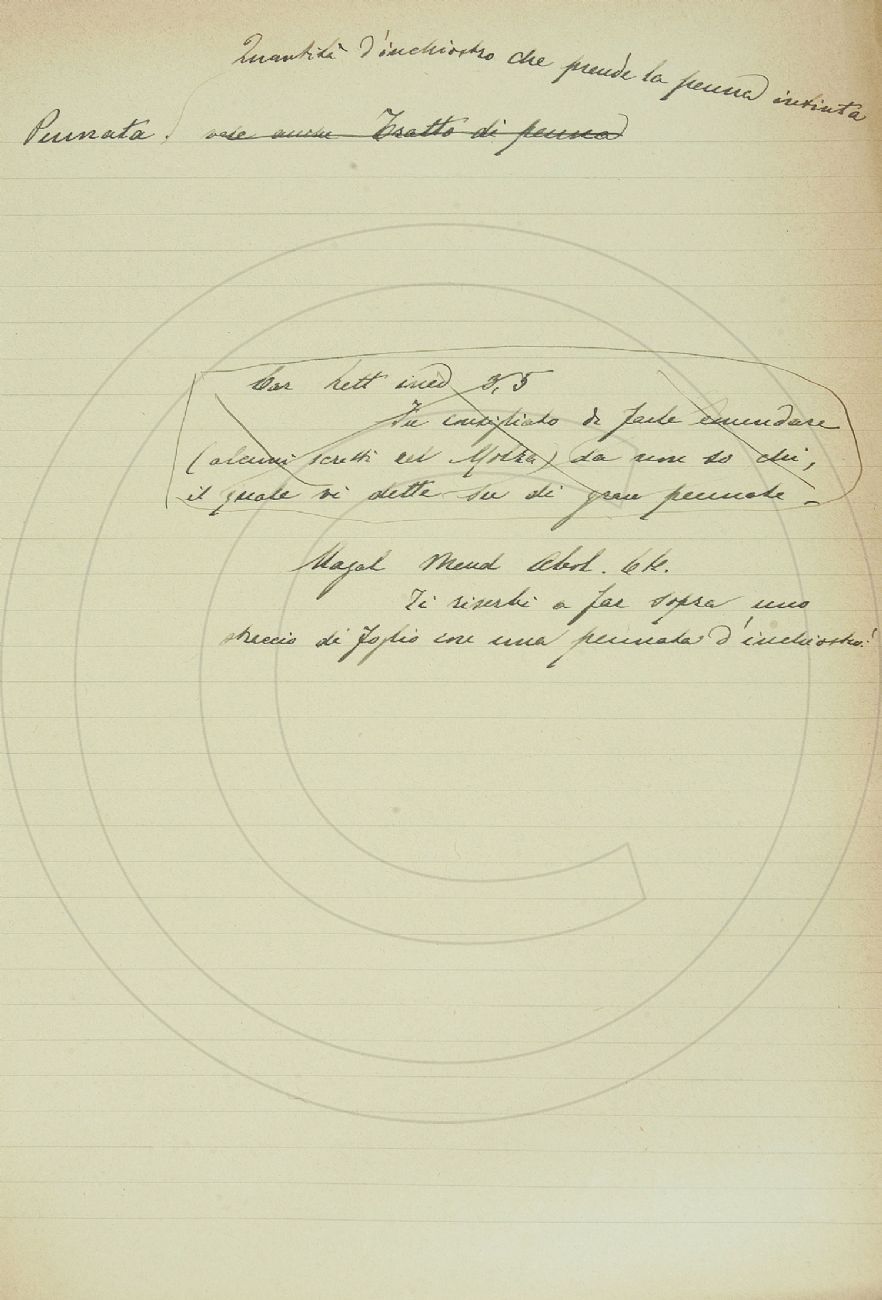 Quantità d'inchiostro che prende la penna intinta
Pennata. vale anche Tratto di penna
Car Lett ined 3, 5
Fu consigliato di farle emendare
(alcuni scritti del Molza) da non so chi,
il quale vi dette su di gran pennate -
Magal Mend Abol. 64.
Ti riserbi a far sopra uno
straccio di foglio con una pennata d'inchiostro!